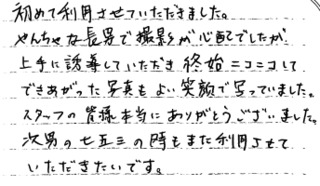 初めて利用させていただきました。
やんちゃな長男で撮影が心配でしたが
上手に誘導していただき終始ニコニコして
できあがった写真もよい笑顔で写っていました。
スタッフの皆様本当にありがとうございました。
次男の七五三の時もまた利用させて
いただきたいです。